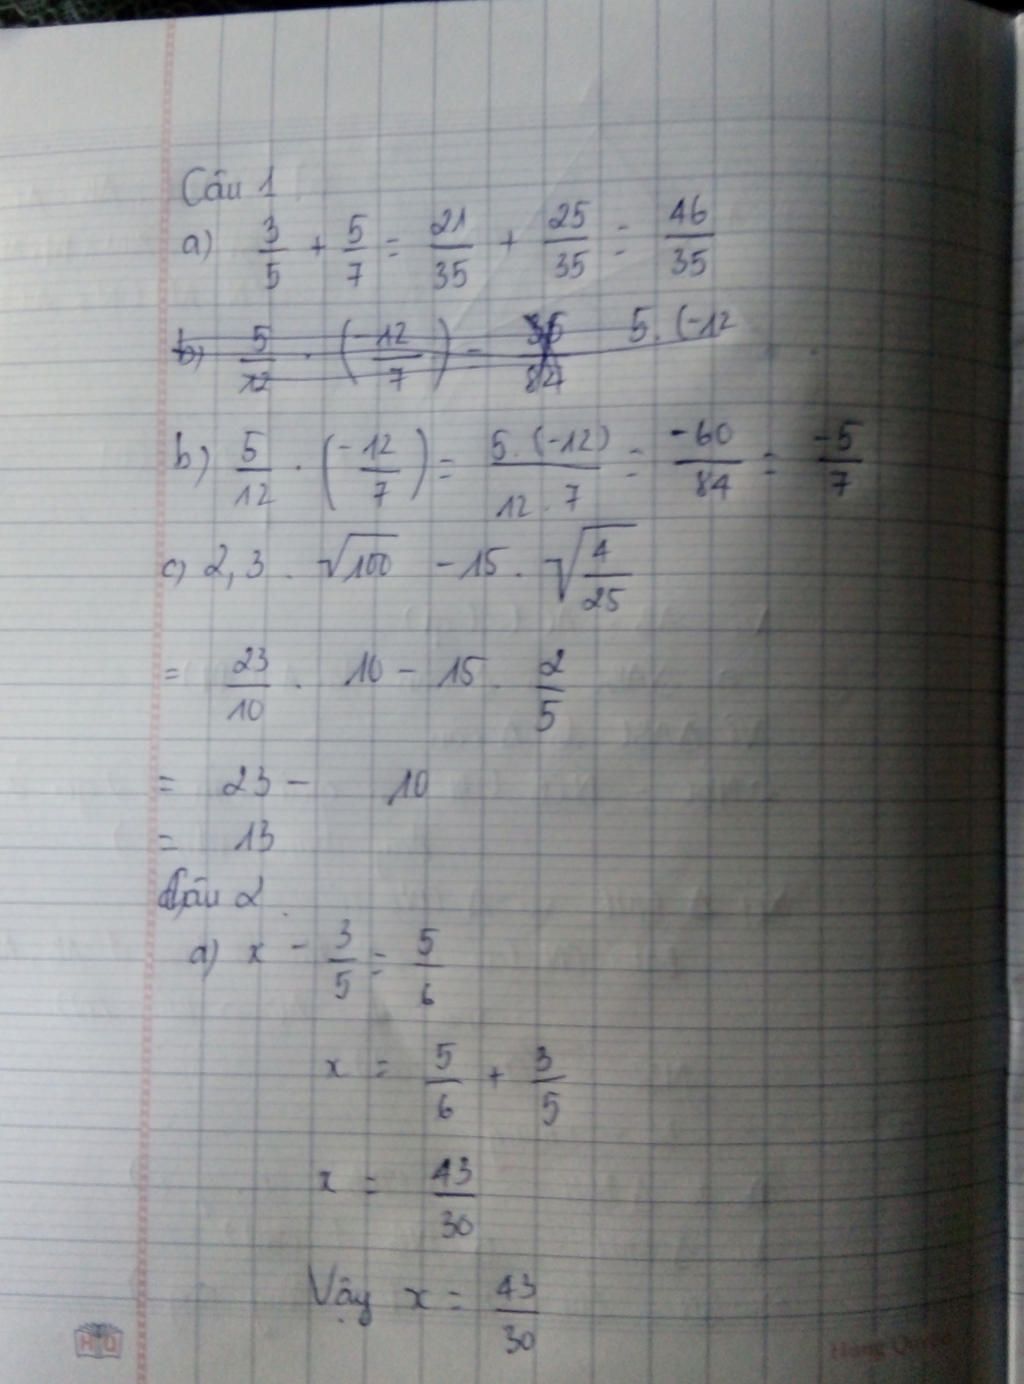 Câu 1
a) 3/5 + 5/7 = 21/35 + 25/35 = 46/35
b) 5/12 . (-12/7) = 35/84 5.(-12
b) 5/12 . (-12/7) = 5.(-12)/12.7 = -60/84 = -5/7
c) 2,3 . √100 - 15 . √4/25
= 23/10 . 10 - 15 . 2/5
= 23 - 10
= 13
Câu 2
a) x - 3/5 = 5/6
x = 5/6 + 3/5
x = 43/30
Vậy x = 43/30
HQ